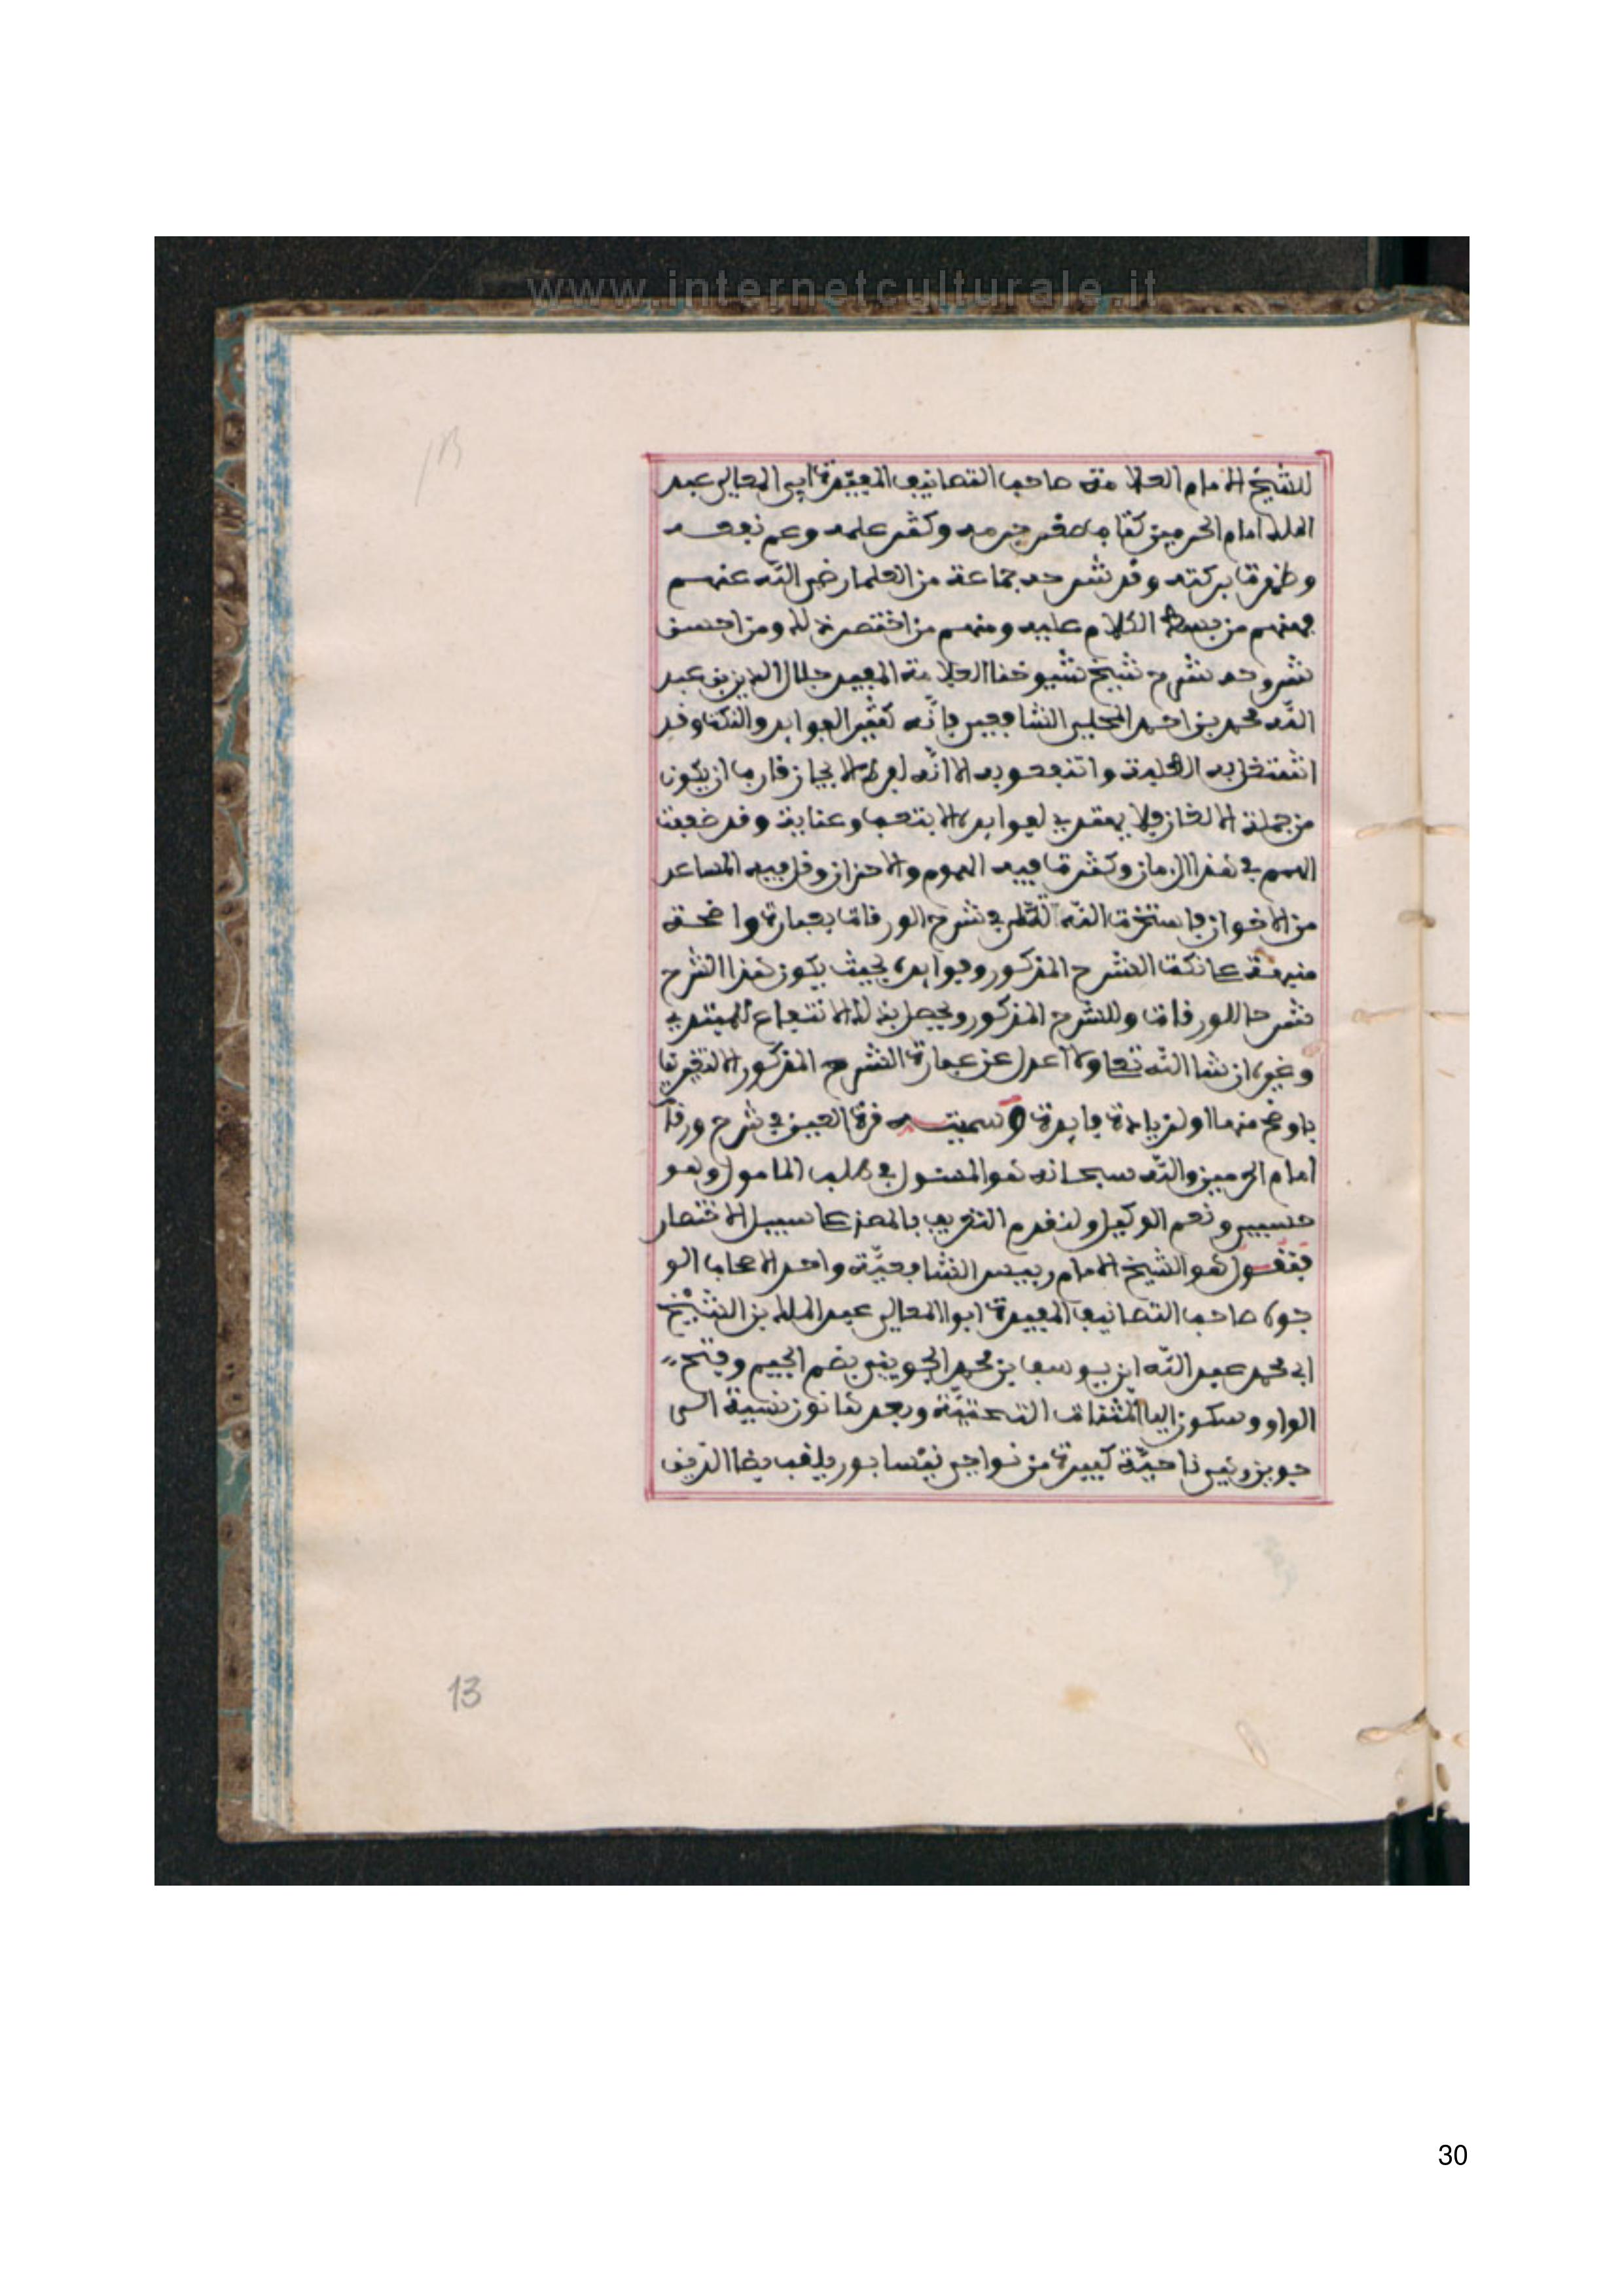 www.internetculturale.it
للشيخ الامام العلامة صاحب التصانيف المفيدة ابي المعالي عبد
الملك امام الحرمين كتاب صغر جرمه وكثر علمه وعم نفعه
وظهرت بركته وقد شرحه جماعة من العلما رضي الله عنهم
فمنهم من بسط الكلام عليه ومنهم من اختصر ذلك ومن احسن
شروحه شرح شيخ شيوخنا العلامة المفيد جلال الدين بن عبد
الله محمد بن احمد المحلي الشافعي فانّه كثير الفوايد والنكت وقد
اشتغل به الطلبة وانتفعوا به الا انّه لفرط الايجاز قارب ان يكون
من جملة الالغاز فلا يهتدي لفوايده الا بتعب وعناية وقد ضعفت
الهمم في هذا الزمان وكثرت فيه الهموم والاحزان وقل فيه المساعد
من الاخوان فاستخرت الله تعالى في شرح الورقات بعبارة واضحة
منبهة على نكت الشرح المذكور وفوايده بحيث يكون هذا الشرح
شرحا للورقات وللشرح المذكور ويحصل بذلك الانتفاع للمبتدي
وغيره ان شا الله تعا ولا اعدل عن عبارة الشرح المذكور الا لتغييرها
باوضح منها او لزيادة فايدة وسميته قرة العين في شرح ورقات
امام الحرمين والله سبحانه هو المسئول في طلب المامول وهو
حسبي ونعم الوكيل ولنقدم التعريف بالمصنف على سبيل الاختصار
فنقول هو الشيخ الامام رييس الشافعيّة واحد الاصحاب الو
جوه صاحب التصانيف المفيدة ابوا المعالي عبد الملك بن الشيخ
ابي محمد عبد الله ابن يوسف بن محمد الجويني بضم الجيم وفتح
الواو وسكون اليا المثنات التحتيّة وبعدها نون نسبة الى
جوين وهي ناحيّة كبيرة من نواحي نيسابور يلقب بضيا الدين
13
13
30